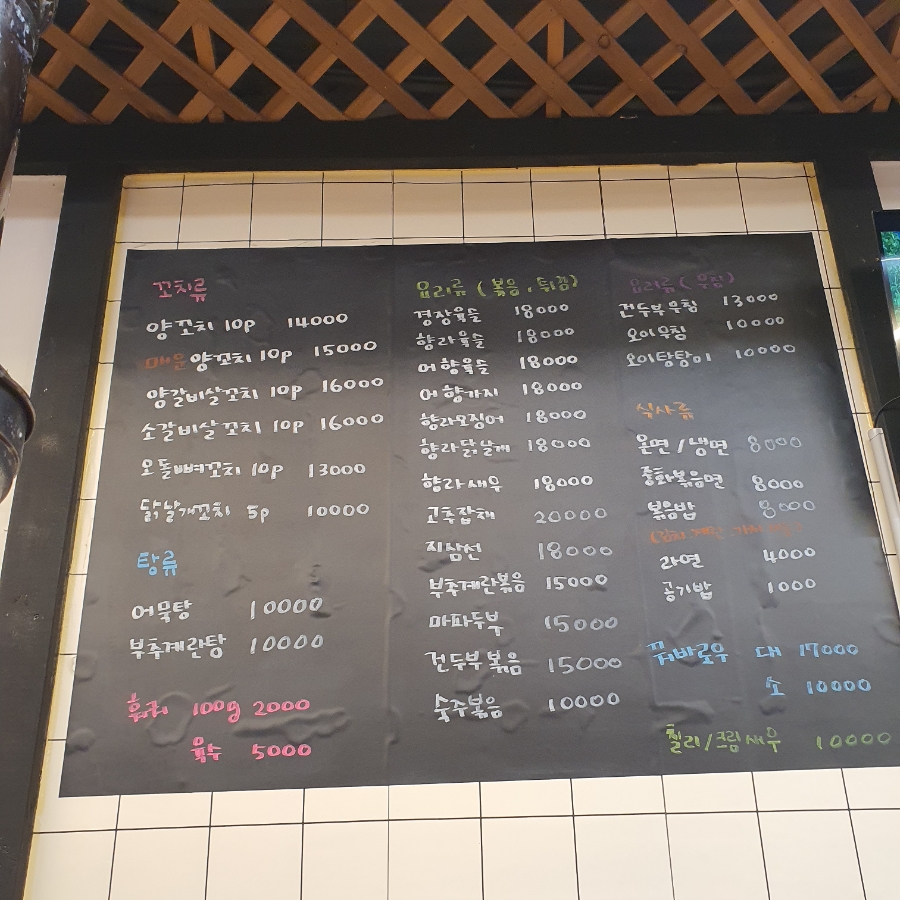 꼬치류
양꼬치 10p 14000
매운 양꼬치 10p 15000
양갈비살꼬치 10p 16000
소갈비살꼬치 10p 16000
오돌뼈꼬치 10p 13000
닭날개꼬치 5p 10000
탕류
어묵탕 10000
부추계란탕 10000
100g 2000
육수 5000
요리류 (볶음, 튀김)
경장육슬 18000
향라육슬 18000
어향육슬 18000
어향가지 18000
향라오징어 18000
향라닭날개 18000
향라새우 18000
고추잡채 20000
지삼선 18000
부추계란볶음 15000
마파두부 15000
건두부볶음 15000
숙주볶음 10000
요리류 (무침)
건두부무침 13000
오이무침 10000
오이탕탕이 10000
식사류
온면/냉면 8000
중화볶음면 8000
볶음밥 8000
라면 4000
공기밥 1000
꿔바로우 대 17000
소 10000
칠리/크림새우 10000